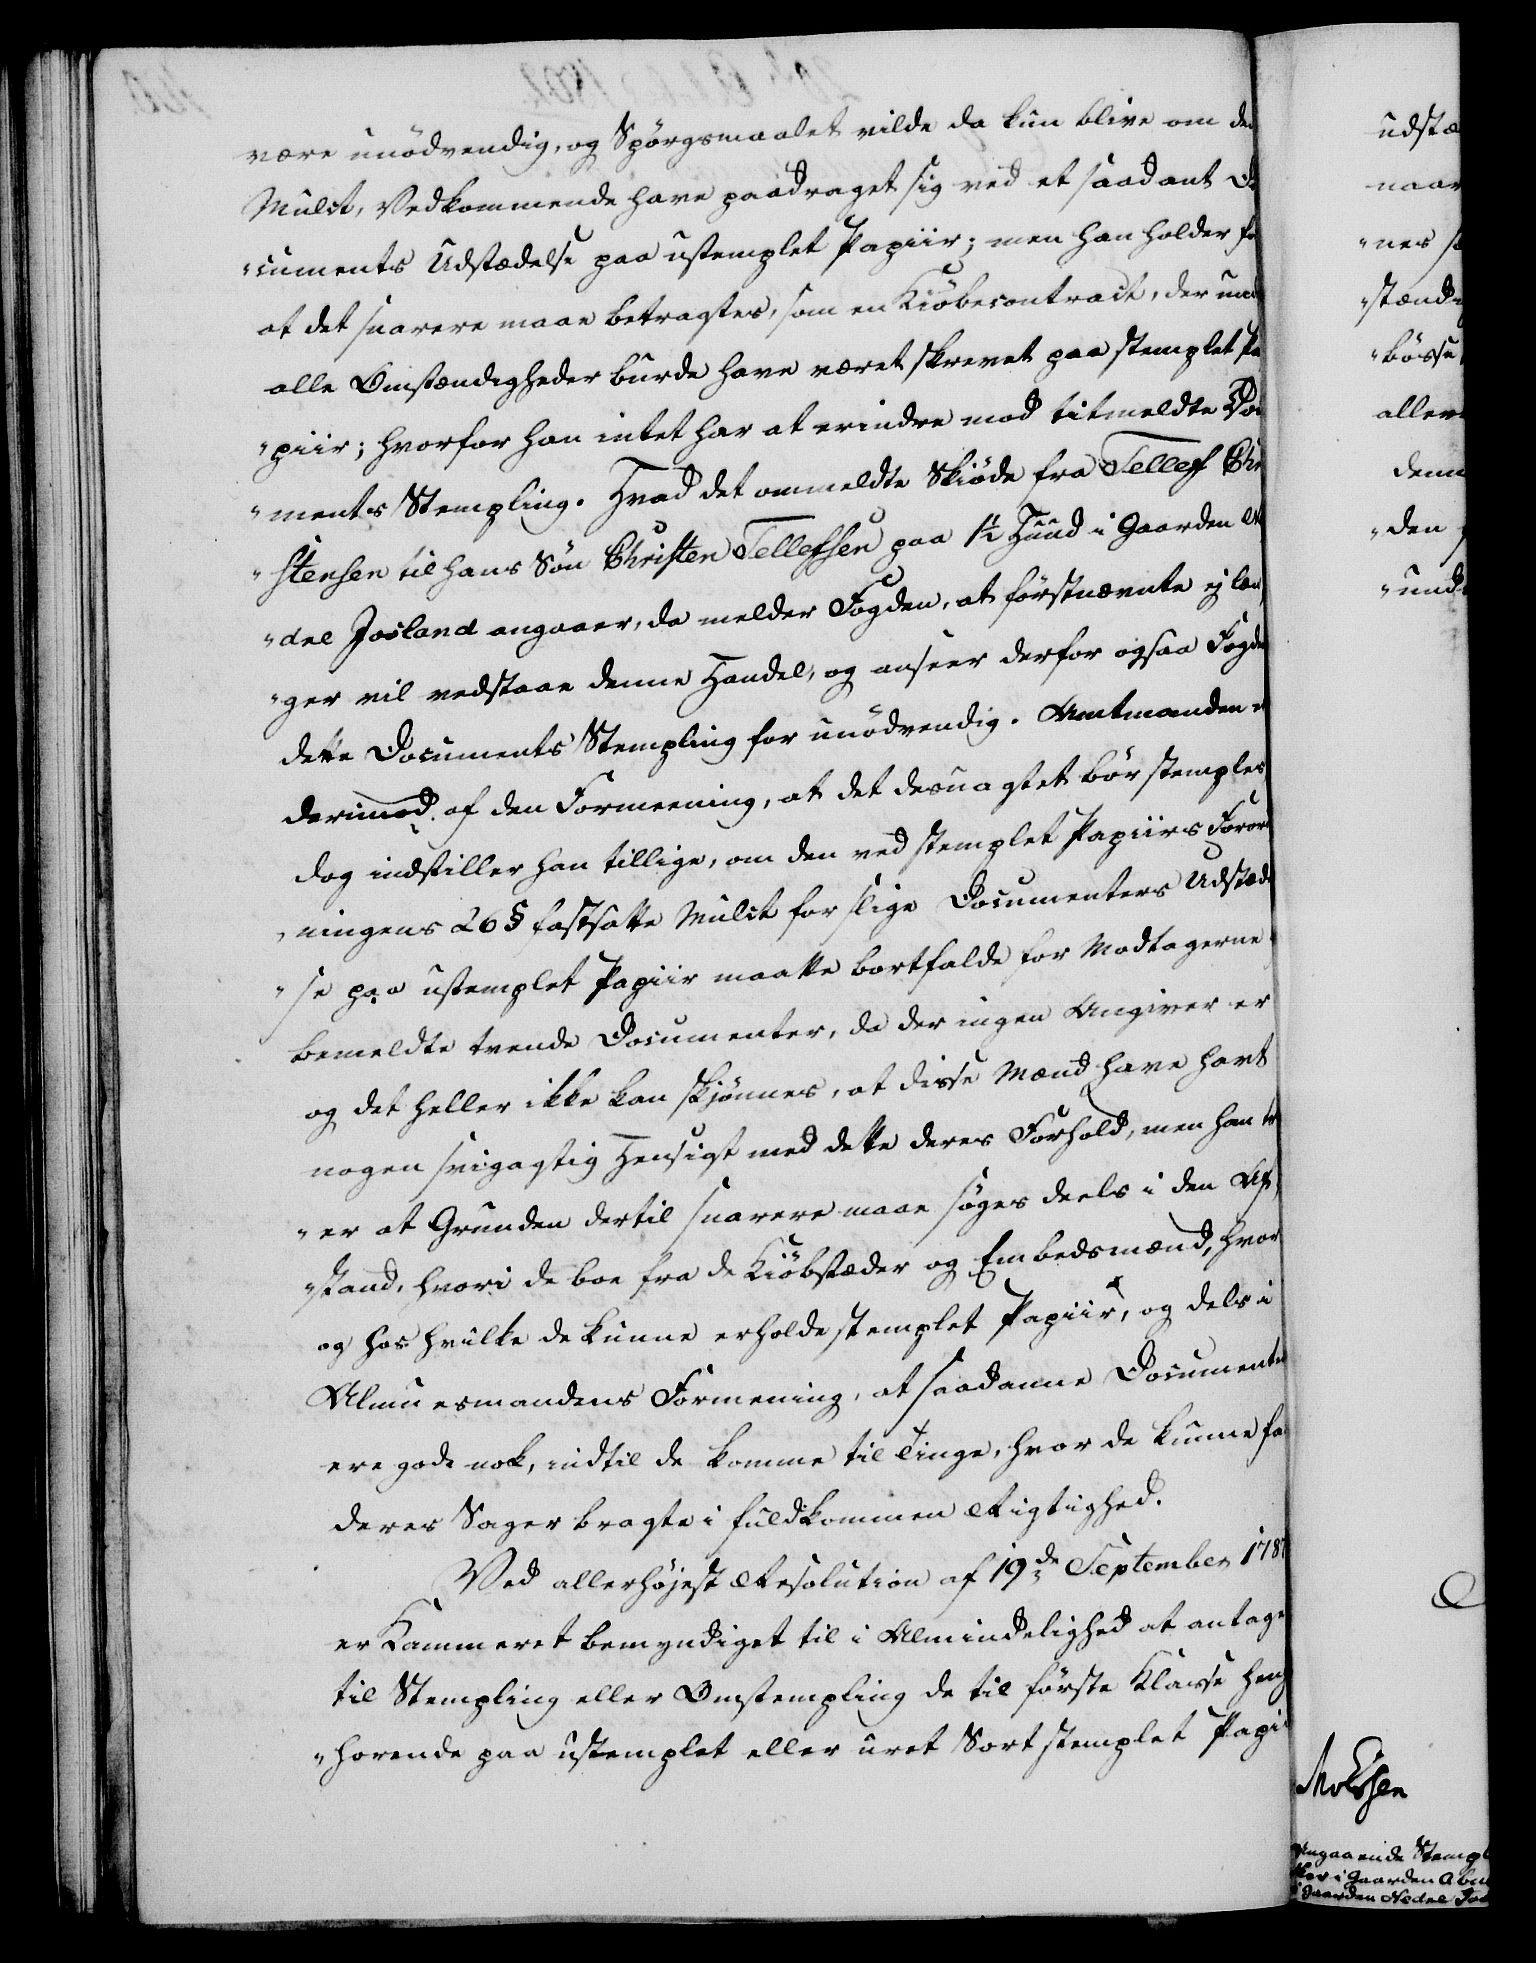 være unödvendig, og Spörgsmaalet vilde da kun blive om den
Mulct, Vedkommende have paadraget sig ved et saadant Do
"cuments Udstædelse paa ustemplet Papiir; men han holder for
at det snarere maae betragtes, som en Kiöbecontract, der under
alle Omstændigheder burde have været skrevet paa stemplet Pa
"piir; hvorfor han intet har at erindre mod titmeldte Docu
"ments Stempling. Hvad det ommeldte Skiöde fra Tellef Chri
"stensen til hans Sön Christen Tellefsen paa 1½ Huud i Gaarden Ne
"dre Josland angaaer, da melder Fogden, at förstnævnte ej læn
"ger vil vedstaae denne Handel, og anseer derfor ogsaa Fogden
dette Documents Stempling for unödvendig. Amtmanden er
derimod af den Formeening, at det desuagtet bör stemples
dog indstiller han tillige, om den ved stemplet Papiirs Forord
"ningens 26 § fastsatte Mulct for slige Documenters Udstædel
"se paa ustemplet Papiir maatte bortfalde for Modtagerne
bemeldte tvende Documenter, da der ingen Angiver er
og det heller ikke kan skjönnes, at disse Mænd have havt
nogen svigagtig Hensigt med dette deres Forhold, men han tro
"er at Grunden dertil snarere maae söges deels i den Af
"stand, hvori de boe fra de Kiöbstæder og Embedsmænd, hvor
og hos hvilke de kunne erholde stemplet Papiir, og dels i
Almuesmandens Formening, at saadanne Documenter
ere gode nok, indtil de komme til Tinge, hvor de kunne faae
deres Sager bragte i fuldkommen Rigtighed.
Ved allerhöjest Resolution af 19de September 1787
er Kammeret bemyndiget til i Almindelighed at antage
til Stempling eller Omstempling de til förste Klasse hen
"hörende paa ustemplet eller uret Sort stemplet Papi
udstæ
naar
"nes
"stænd
"bösse
aller
denn
"den
"und
Molssen
Angaaende Stempl
i Gaarden
Gaarden Nedre Jos